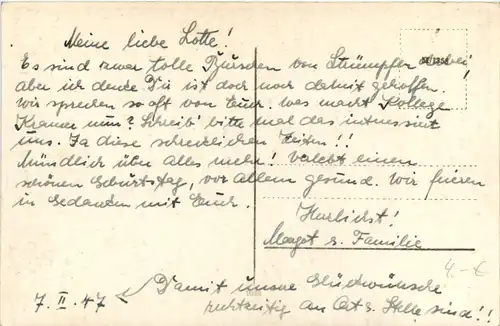 Meine liebe Lotte!
Es sind zwar tolle Burschen von Strümpfen wobei,
aber ich denke Dir ist doch noch damit geholfen.
Wir sprechen so oft von Euch. Was macht Kollege
Kramer nun? Schreib' bitte mal das interessiert
uns. Ja diese schrecklichen Zeiten!!
Mündlich über Alles mehr! Verlebt einen
schönen Geburtstag, vor allem gesund. Wir feiern
in Gedanken mit Euch.
Herzlichst!
Margot u. Familie
4.-€
7. II. 47
Damit unsere Glückwünsche
rechtzeitig an Ort u. Stelle sind!!